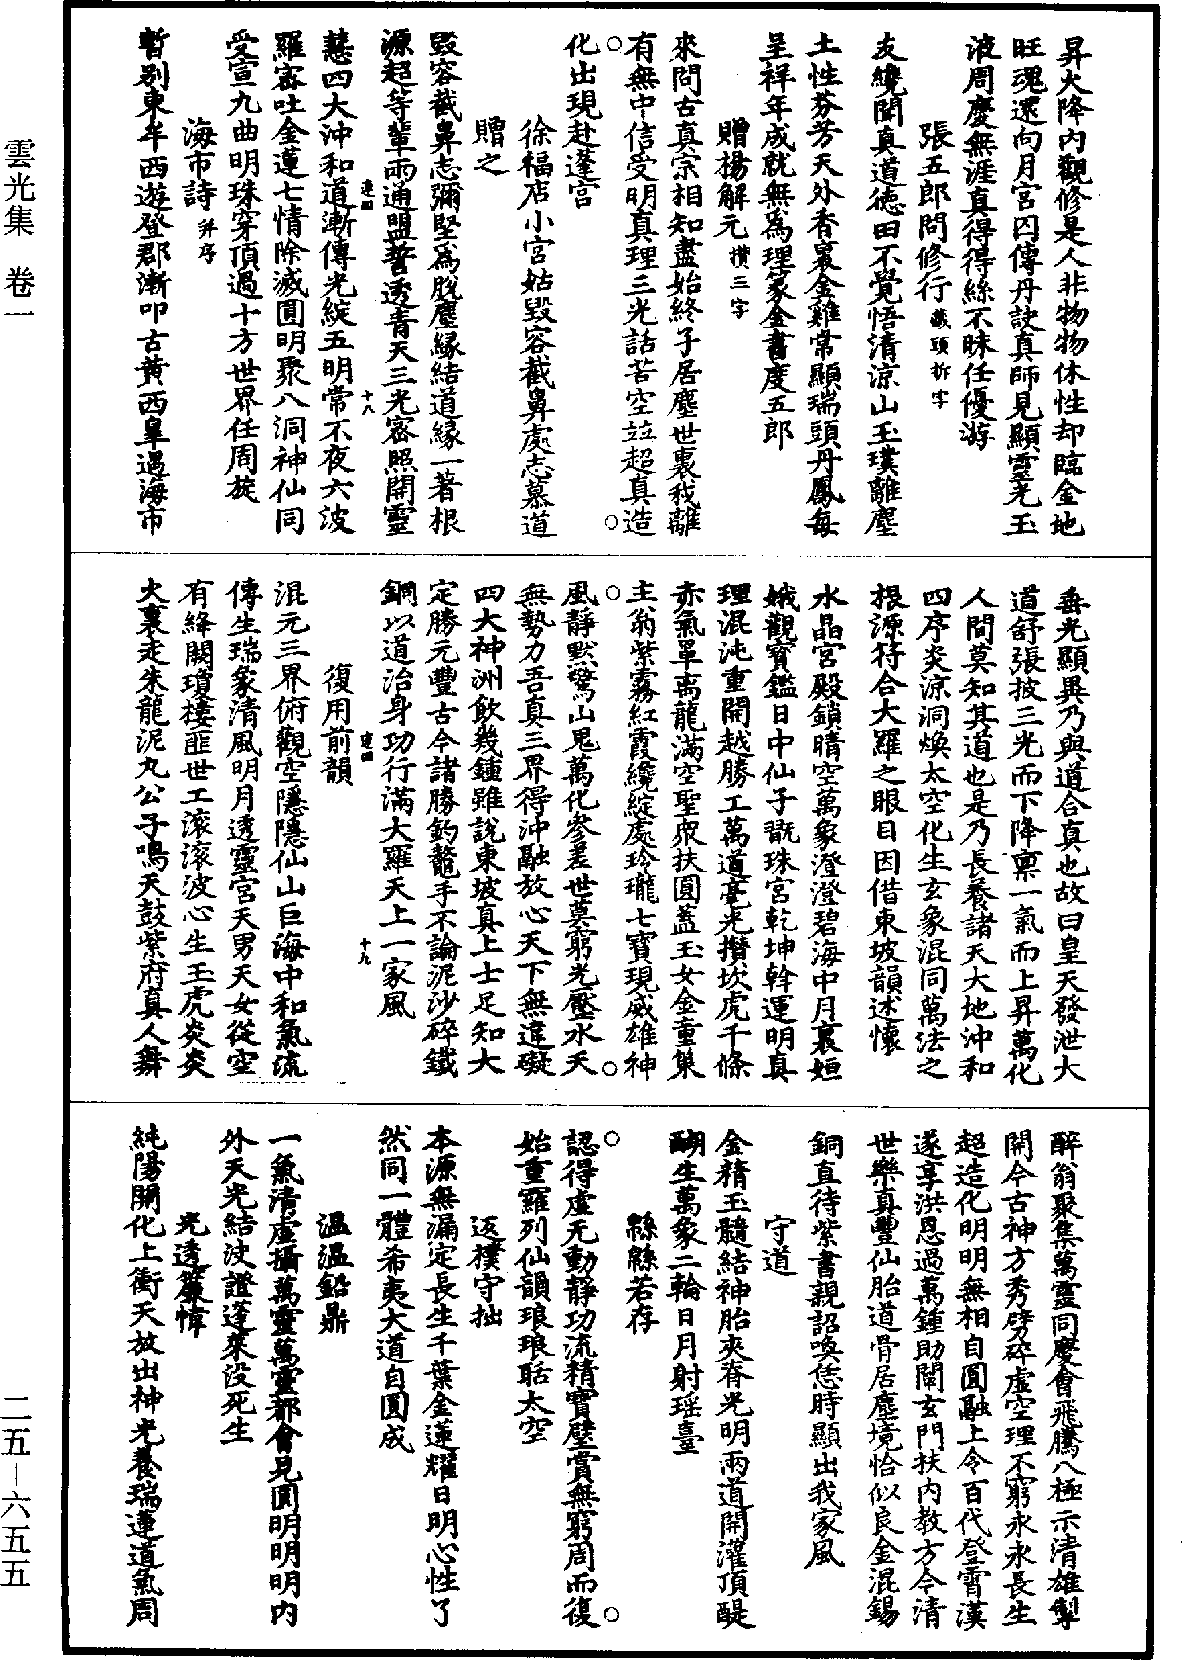 昇火降內觀修是人非物物休性却臨金地
旺魂還向月宮囚傳丹訣真師見顯靈光玉
液周慶無涯真得得絲不昧任優游
張五郎問修行藏頭拆字
友纔閑真道德田不覺悟清涼山玉璞離塵
土性芬芳天外香裏金雞常顯瑞頭丹鳳每
呈祥年成就無為理篆金書度五郎
贈楊解元攢三字
來問古真宗相知盡始終子居塵世裏我離
有無中信受明真理三光話苦空竝超真造
化出現赴蓬宮
徐福店小宮姑毀容截鼻處志慕道
贈之
毀容截鼻志彌堅為脫塵緣結道緣一著根
源超等輩兩通盟誓透青天三光密照開靈
慧四大沖和道漸傳光綻五明常不夜六波
羅密吐金蓮七情除滅圓明聚八洞神仙同
受宣九曲明珠穿頂過十方世界任周旋
海市詩并序
暫別東牟西遊登郡漸叩古黃西皐遇海市
垂光顯異乃與道合真也故曰皇天發泄大
道舒張披三光而下降稟一氣而上昇萬化
人間莫知其道也是乃長養諸天大地沖和
四序炎涼洞煥太空化生玄象混同萬法之
根源符合大羅之眼目因借東坡韻述懷
水晶宮殿鎖晴空萬象澄澄碧海中月裏姮
娥觀寶鑑日中仙子翫珠宮乾坤斡運明真
理混沌重開越勝工萬道毫光攢坎虎千條
赤氣罩离龍滿空聖眾扶圓蓋玉女金童集
主翁紫霧紅霞纔綻處玲瓏七寶現威雄神
風靜默驚山鬼萬化參差世莫窮光壓水天
無勢力吾真三界得沖融放心天下無違礙
四大神洲飲幾鍾雖說東坡真上士足知大
定勝元豐古今諸勝釣鼇手不論泥沙碎鐵
銅以道治身功行滿大羅天上一家風
復用前韻
混元三界俯觀空隱隱仙山巨海中和氣流
傳生瑞象清風明月透靈宮天男天女從空
有絳闕瓊樓匪世工滚滚波心生玉虎炎炎
火裏走朱龍泥丸公子鳴天鼓紫府真人舞
醉翁聚集萬靈同慶會飛騰八極示清雄掣
開今古神方秀劈碎虛空理不窮永永長生
超造化明明無相自圓融上令百代登霄漢
遂享洪恩過萬鍾助闡玄門扶內教方今清
世樂真豐仙胎道骨居塵境恰似良金混錫
銅直待紫書親詔喚恁時顯出我家風
守道
金精玉髓結神胎夾脊光明兩道開灌頂醍
醐生萬象二輪日月射瑤臺
緜緜若存
認得虛无動靜功流精寶璧賞無窮周而復
始重羅列仙韻琅琅聒太空
返樸守拙
本源無漏定長生千葉金蓮耀日明心性了
然同一體希夷大道自圓成
溫溫鉛鼎
一氣清虛攝萬靈萬靈都會見圓明明明內
外天光結決證蓬萊沒死生
光透簾幃
純陽關化上衝天放出神光養瑞蓮道氣周
雲光集　卷一
二五－六五五